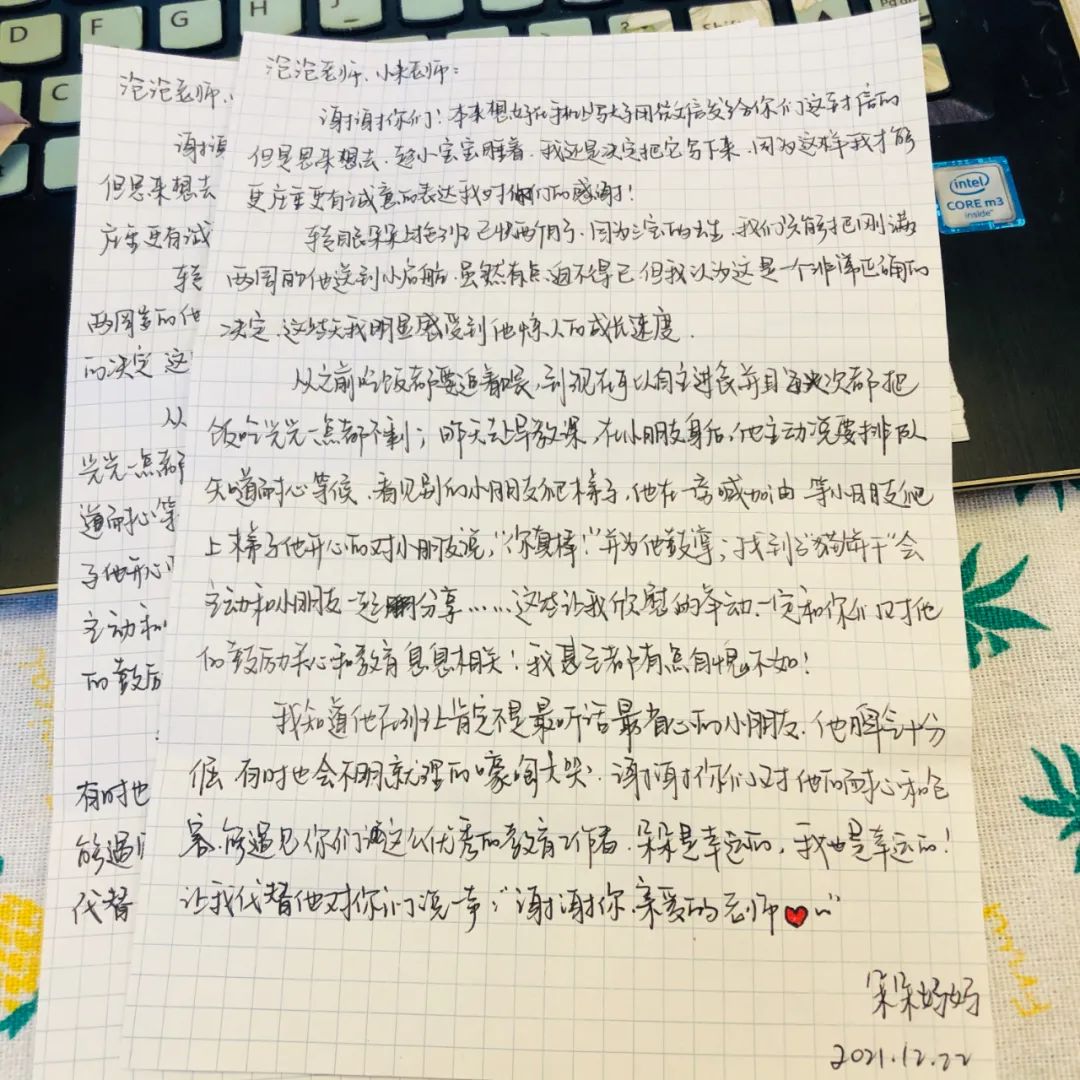 泡泡老师、小米老师：
谢谢你们！本来想好在手机上写大段用微信发给你们这封信的
但是思来想去，趁小宝宝睡着，我还是决定把它写下来，因为这样我才能
更庄重更有诚意的表达我对你们的感谢！
转眼朵朵上托班已快两个月了，因为三宝的出生，我们只能把刚满
两周的他送到小启航，虽然有点迫不得已，但我认为这是一个非常正确的
决定，这些天我明显感受到他惊人的成长速度．
从之前吃饭都要追着喂，到现在可以自主进食并且每次都把
饭吃光光一点都不剩；昨天去早教课，在小朋友身后，他主动说要排队
知道耐心等候，看见别的小朋友爬梯子，他在一旁喊加油，等小朋友爬
上梯子他开心的对小朋友说，“你真棒！”并为他鼓掌；找到了“猫饼干”会
主动和小朋友一起分享……这些让我欣慰的举动，一定和你们对他
的鼓励关心和教育息息相关！我甚至都有点自愧不如！
我知道他在班上肯定不是最听话最省心的小朋友．他脾气十分
倔，有时也会不明就理的嚎啕大哭．谢谢你们对他的耐心和包
容，能遇见你们这么优秀的教育工作者，朵朵是幸运的，我也是幸运的！
让我代替他对你们说一声：“谢谢你，亲爱的老师❤”
朵朵妈妈
2021.12.22
泡泡老师、
谢谢
但思来想去
庄重更有诚
转
两周岁的他
的决定 这
从
光光一点都
道耐心等
子他开心
主动和小
的鼓励
有时也
能遇
代替
D F G H
C
Shift
intel
CORE m3
inside